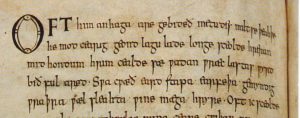 OFT him anhaga are gebideð metudes miltse þeah þe
he mod cearig geond lagu lade longe sceolde hreran
mid hondum hrim cealde sæ ƿadan ƿræc lastas ƿyrd
bið ful aræd. Sƿa cƿæð eard stapa earfeþa gemyndig
ƿraþra ƿæl sleahta ƿine mæga hryre. Oft ic sceolde